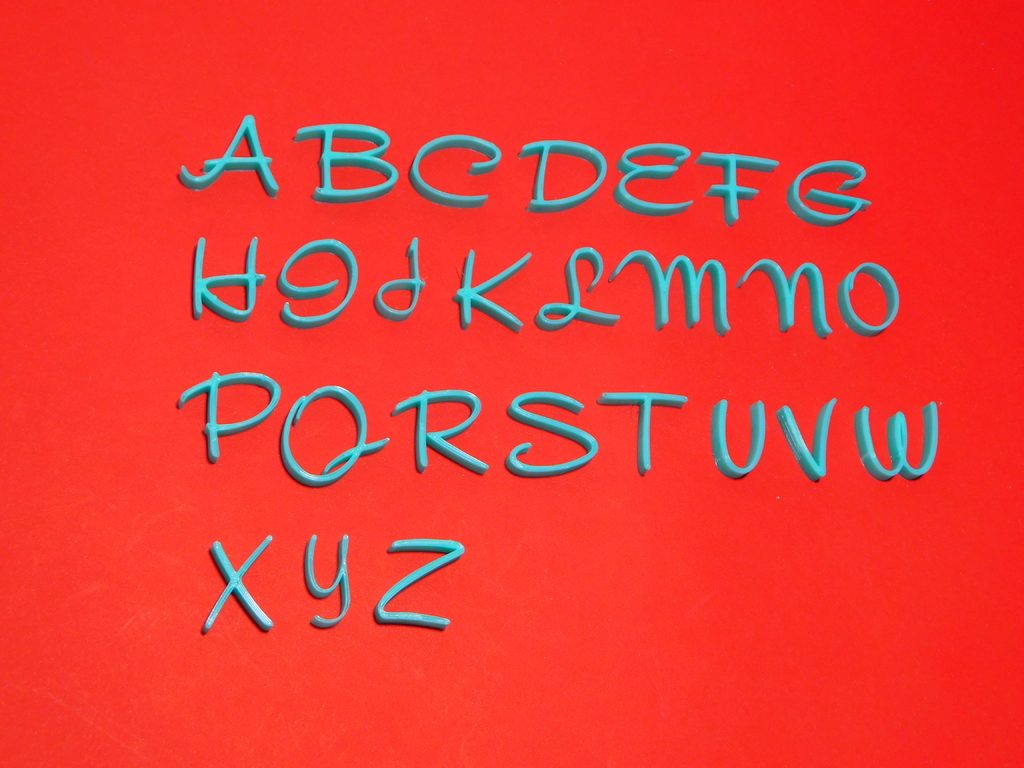 ABCDEFG
HIJKLMNO
PQRSTUVW
XYZ